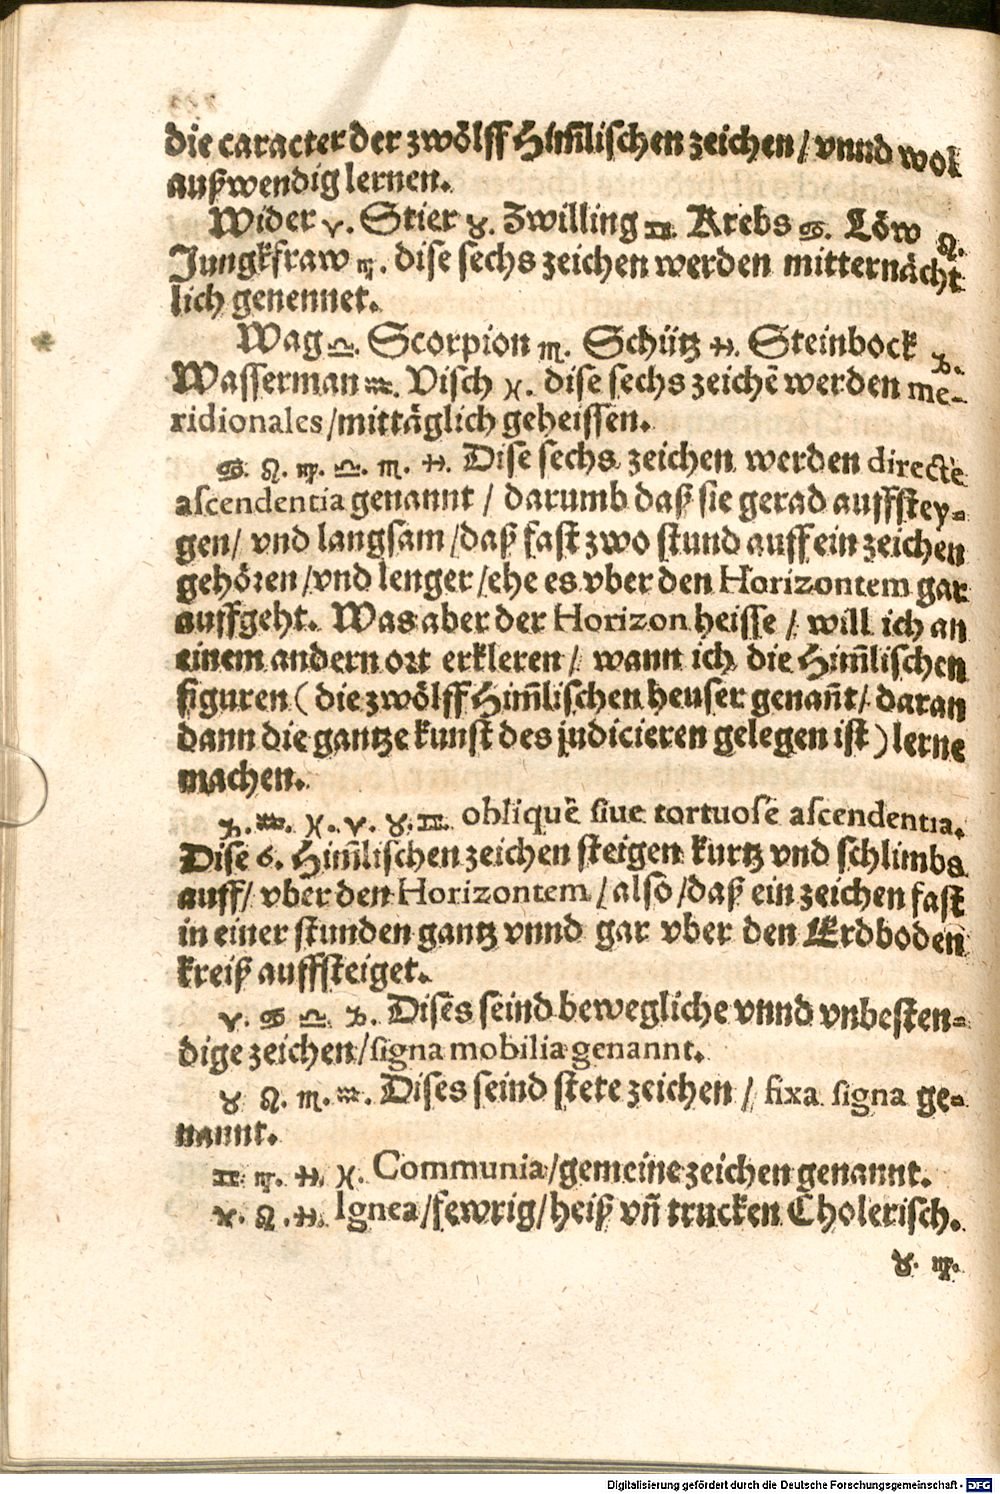 die caracter der zwölff Him̃lischen zeichen / vnnd wol
außwendig lernen.
Wider ♈. Stier ♉. Zwilling ♊. Krebs ♋. Löw ♌.
Jungkfraw ♍. dise sechs zeichen werden mitternächt
lich genennet.
Wag ♎. Scorpion ♏. Schütz ♐. Steinbock ♑.
Wasserman ♒. Visch ♓. dise sechs zeichē werden me-
ridionales / mittäglich geheissen.
♋. ♌. ♍. ♎. ♏. ♐. Dise sechs zeichen werden directè
ascendentia genannt / darumb daß sie gerad auffstey-
gen / vnd langsam / daß fast zwo stund auff ein zeichen
gehören / vnd lenger / ehe es vber den Horizontem gar
auffgeht. Was aber der Horizon heisse / will ich an
einem andern ort erkleren / wann ich die Him̃lischen
figuren ( die zwölff Him̃lischen heuser genañt / daran
dann die gantze kunst des judicieren gelegen ist ) lerne
machen.
♑. ♒. ♓. ♈. ♉. ♊. obliquè siue tortuosè ascendentia.
Dise 6. Him̃lischen zeichen steigen kurtz vnd schlimbs
auff / vber den Horizontem / also / daß ein zeichen fast
in einer stunden gantz vnnd gar vber den Erdboden
kreiß auffsteiget.
♈. ♋ ♎ ♑. Dises seind bewegliche vnnd vnbesten-
dige zeichen / signa mobilia genannt.
♉ ♌. ♏. ♒. Dises seind stete zeichen / fixa signa ge-
nannt.
♊ ♍. ♐. ♓. Communia / gemeine zeichen genannt.
♈. ♌. ♐. Ignea / fewrig / heiß vñ trucken Cholerisch.
♉. ♍.
Digitalisierung gefördert durch die Deutsche Forschungsgemeinschaft - DFG